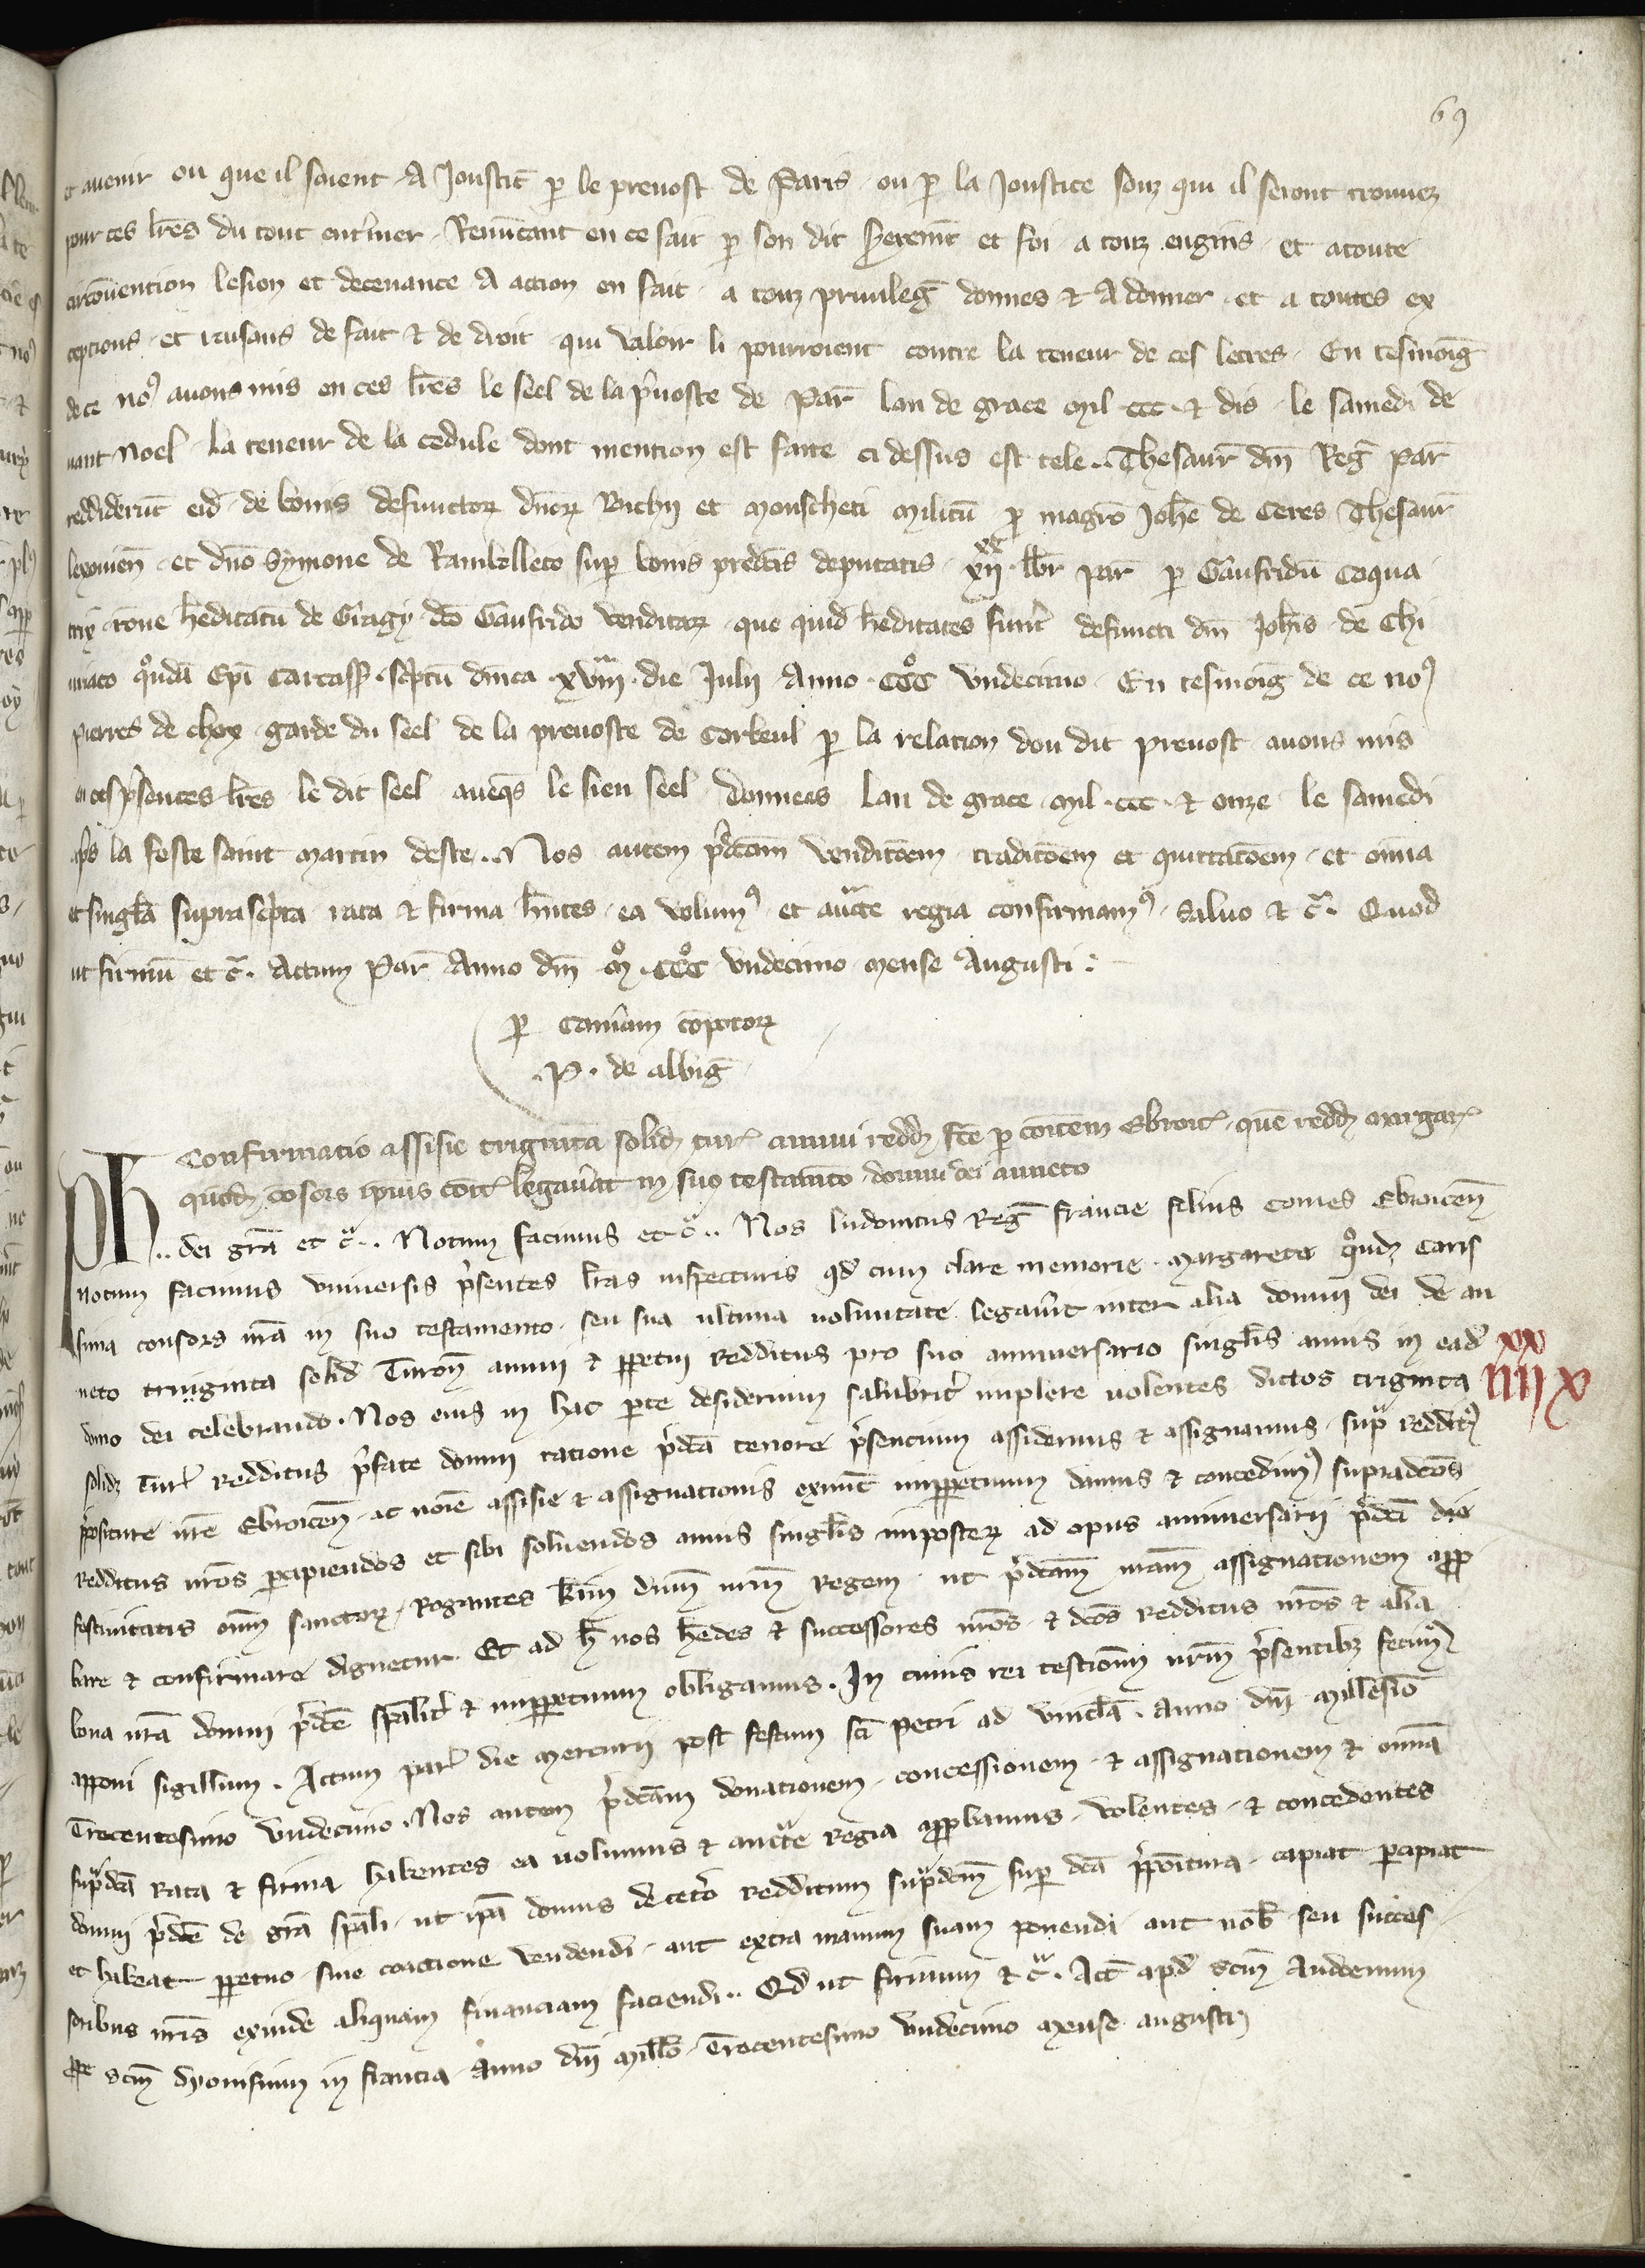 69
et avenir ou que il soient a Joustic̄ p̲ le prevost de Paris ou p̲ la Joustice souz qui il seront trouvez
pour ces lr̄es du tout ent̾iner. Renūcant en ce fait p̲ son dit serem̄t et foi a touz engins et a toute
circōvention lesion et decevance a action en fait a touz privileḡ donnes ⁊ a donner et a toutes ex
ceptions et raisons de fait ⁊ de droit qui valoir li pourroient contre la teneur de ces letres. En tesmoiḡ
de ce no⁹ avons mis en ces lr̄es le seel de la p̾voste de Par̄ lan de grace mil .ccc. ⁊ dis le samedi de
vant Noel. La teneur de la cedule dont mention est faite ci dessus est tele .. Thesaur̄ dn̄i Reg̃ Par̄
reddiderūt eid̄ de bonis defunctoꝝ dn̄oꝝ Bichii et Mouscheti militū p̲ magr̄o Joh̄e de Ceres Thesaur̄
lexovien̄ et dn̄o Symone de Rambolleto sup̲ bonis predc̄is deputatis .xii. xx libr̄ par̄ p̲ Gaufridū Coqua
trix rōne h̄editatū de Gragy dc̄o Gaufrido venditaꝝ que quid̄ h̄editates fuer̄t defuncti dn̄i Joh̄is de Chi
niaco q̊ndā Ep̄i Carcass̄. sc̾ptū dn̄ica xviii die Julii Anno CCC undecimo. En tesmoiḡ de ce no⁹
Pierres de garde du seel de la prevoste de Corbeul p̲ la relacion dou dit prevost avons mis
en ces p̾sentes lr̄es le dit seel aveq̄s le sien seel donnees lan de grace mil .ccc. ⁊ onze le samedi
ap̾s la feste saint Martin deste .. Nos autem p̾dc̄am venditōem traditōem et quittatōem et om̄ia
et singl̄a suprasc̾pta rata ⁊ firma h̄ntes ea volum⁹ et auc̄te regia confirmam⁹. Salvo ⁊ c̃. Quod
ut firmū et c̃. Actum Par̄ Anno dn̄i M̊ CCC̊ undecimo mense Augusti :
p̲ Cam̄am cōpotoꝝ
.P. de albiḡ
Confirmatio assisie triginta solidꝫ tur̄ annui reddꝫ fc̄e p̲ comitem Ebroic̄. quē reddꝫ margar̄
quōdꝫ cōsors ip̄ius comit̄ legav̾at in suo testam̄to domui dei anneto
Ph .. dei gr̄a et c̃ .. Notum facimus et c̃ .. Nos ludovicus Reg̃ francie filius comes Ebroicen̄
notum facimus universis p̾sentes lr̄as inspecturis qd̄ cum clare memorie Margareta q̊ndꝫ caris
sima consors nr̄a in suo testamento seu sua ultima voluntate legav̾it inter alia domui dei de an
neto triuginta solid̄ Turon̄ annui ⁊ p̲petui redditus pro suo anniversario singl̄is annis in ead̄
domo dei celebrando. Nos eius in hac p̲te desiderium salubrit̾ implere volentes dictos triginta
xx
iiii x
solidꝫ Tur̄ redditus p̾fate domui ratione p̾dc̄a tenore p̾sencium assidemus ⁊ assignamus sup̲ reddit⁹
p̾positure nr̄e Ebroicen̄ ac noīe assisie ⁊ assignacionis exnūc imp̲petuum damus ⁊ concedim⁹ supradc̄os
redditus nr̄os p̲cipiendos et sibi solvendos annis singl̄is imposteꝝ ad opus anniversarii p̾dc̄i die
festivitatis om̄ sanctoꝝ. Rogantes k̄rm̄ dn̄m nr̄m Regem ut p̾dc̄am nr̄am assignationem app̲
bare ⁊ confirmare dignetur. Et ad h̄ nos h̄edes ⁊ successores nr̄os ⁊ dc̄os redditus nr̄os ⁊ alia
bona nr̄a domui p̾dc̄e sp̄alit̾ ⁊ imp̲petuum obligamus. In cuius rei testiōm nr̄m p̾sentibꝫ fecim⁹
apponi sigillum. Actum par̄ die mercurii post festum sc̄i Petri ad vincl̄a. Anno dn̄i Millesīo
Trecentesimo undecimo. Nos autem p̾dc̄am donationem concessionem ⁊ assignationem ⁊ om̄ia
sup̾dc̄a rata ⁊ firma habentes ea volumus ⁊ auc̄te regia app̲bamus. volentes ⁊ concedentes
domui p̾dc̄e de gr̄a sp̄ali ut ip̄a domus de cet̾o redditum sup̾dc̄m sup̲ dc̄a p̾positura capiat p̲cipiat
et habeat p̲petuo sine coactione vendendi aut extra manum suam ponendi aut nob̄ seu succes
soribus nr̄is exinde aliquam financiam faciendi .. Qd̄ ut firmum ⁊ c̃. Act̄ apd̄ sc̄m Audoenum
p̲pe sc̄m dyonisium in francia Anno dn̄i Mill̄o Trecentesimo undecimo mense augusti